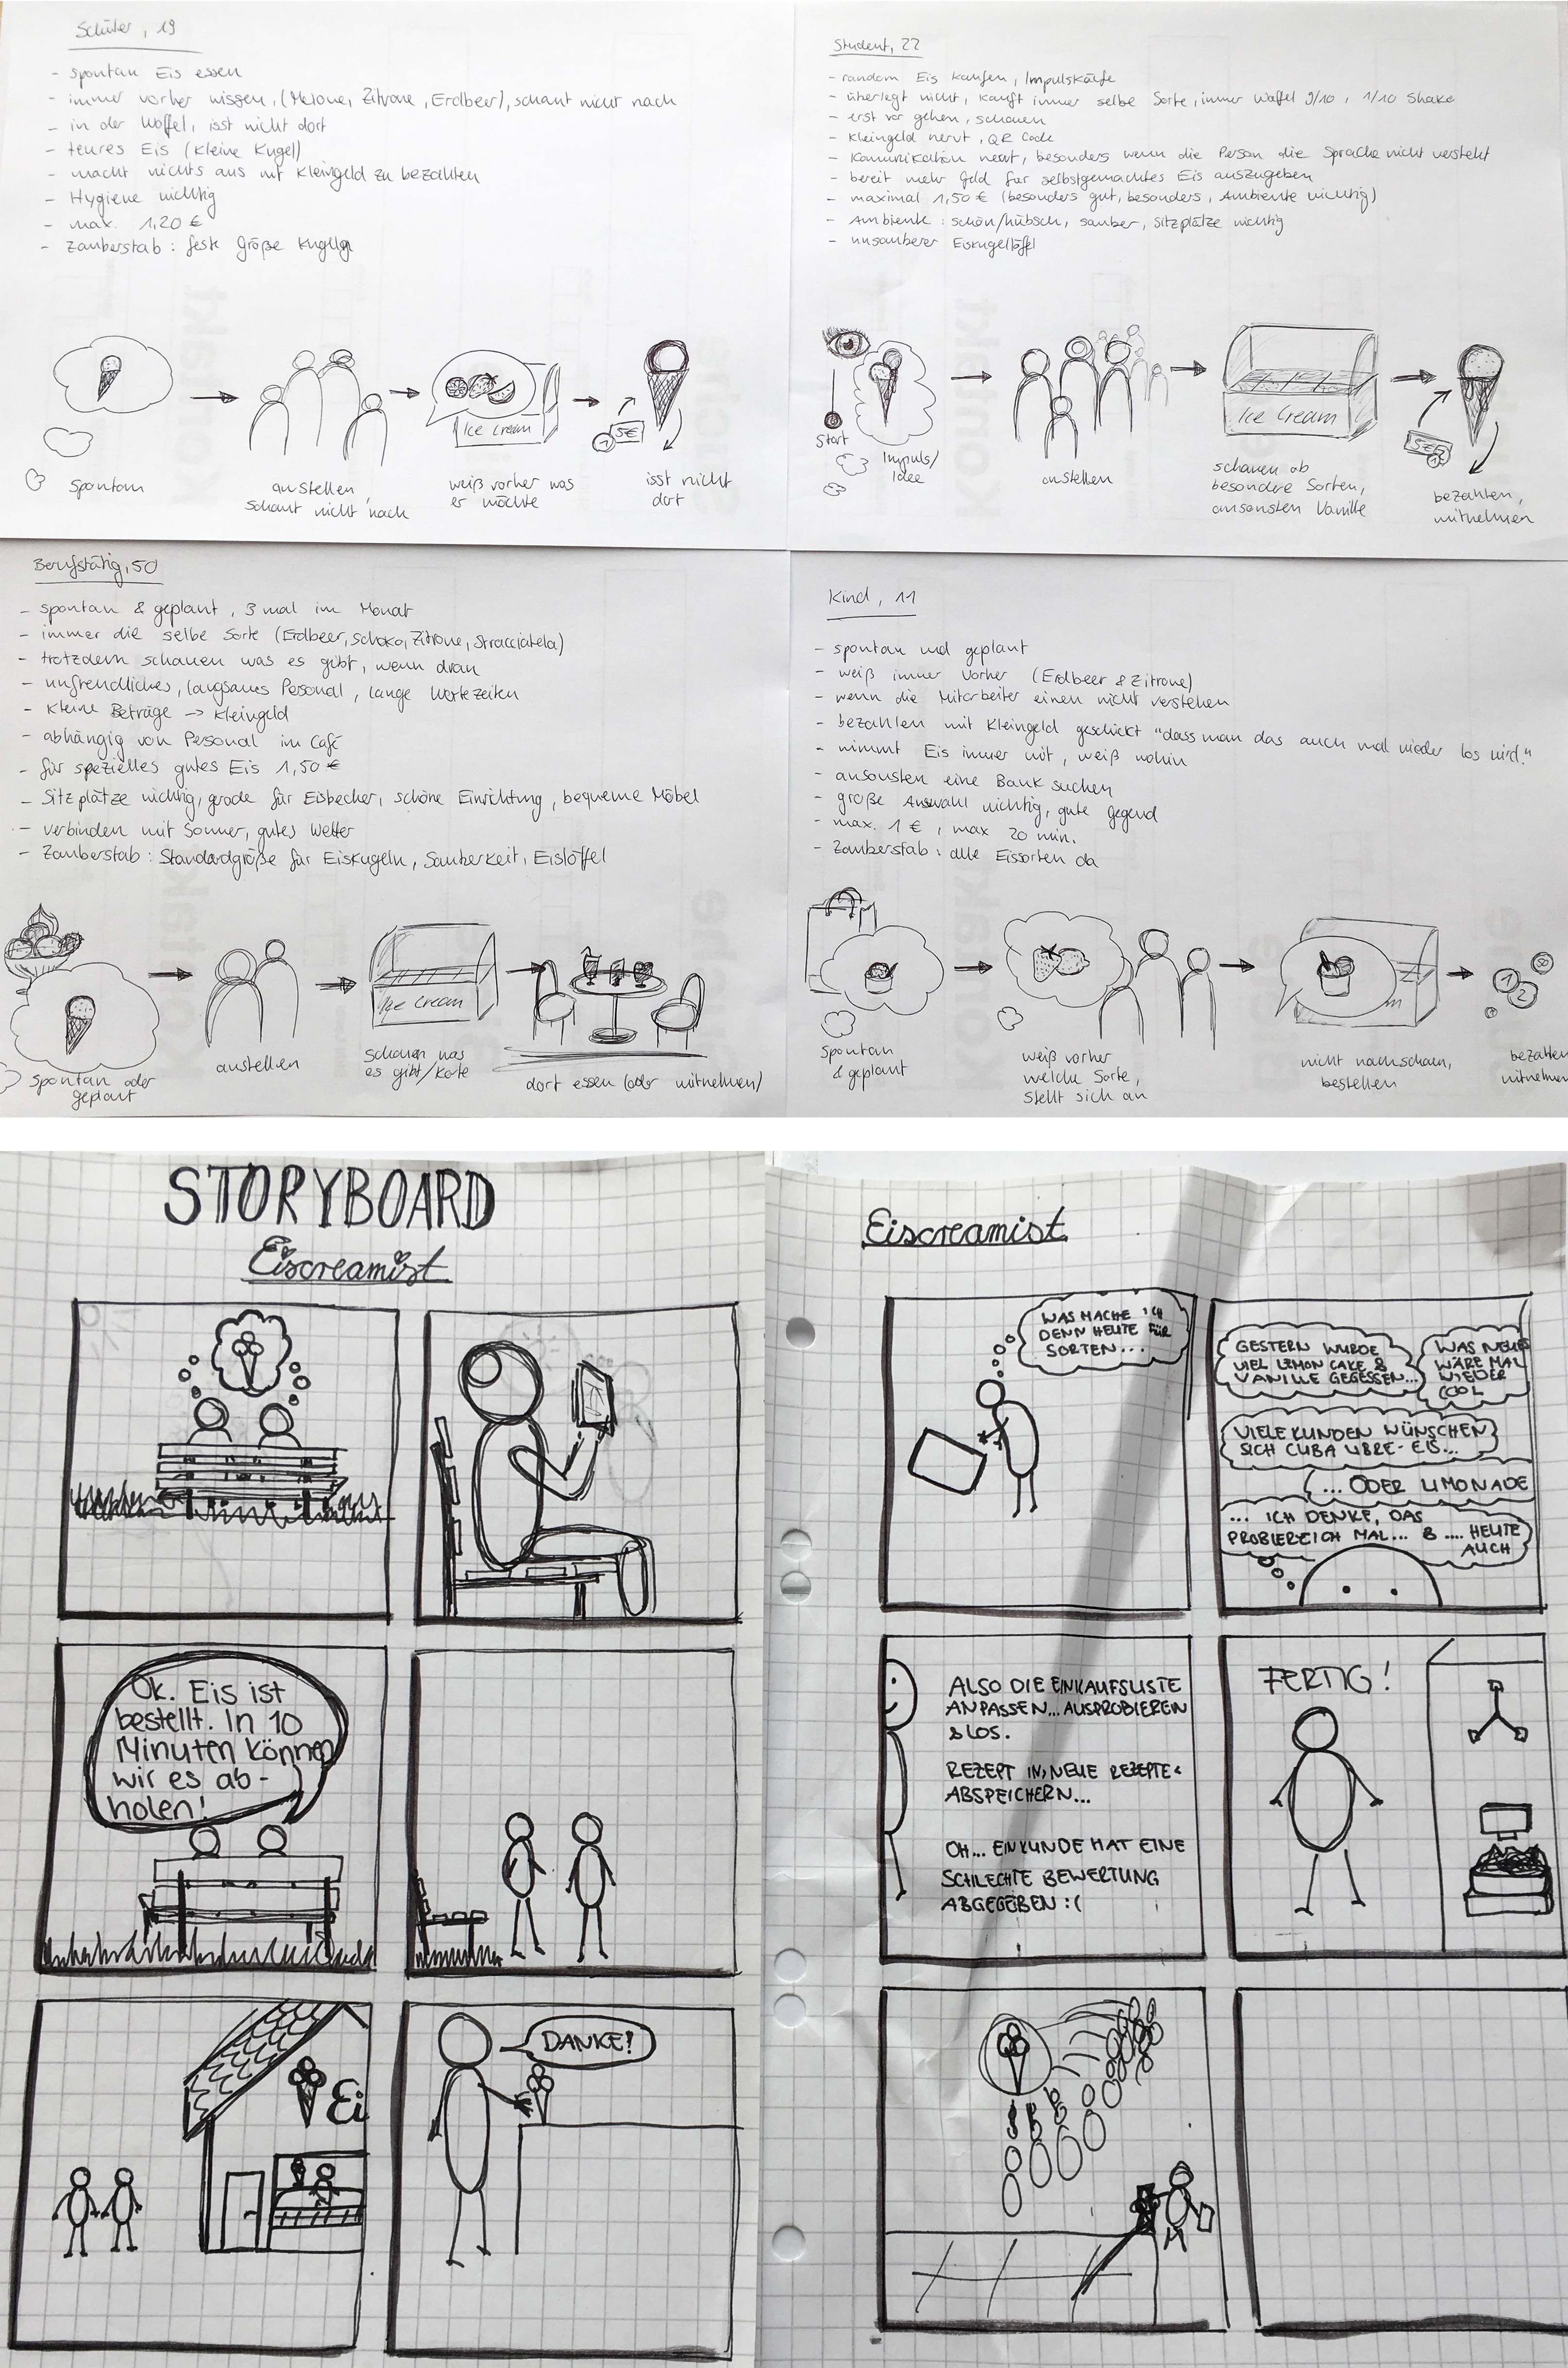 Schüler, 19
- spontan Eis essen
- immer vorher wissen, (Melone, Zitrone, Erdbeer), schaut nicht nach
- in der Waffel, isst nicht dort
- teures Eis (kleine Kugel)
- macht nichts aus mit Kleingeld zu bezahlen
- Hygiene wichtig
- max. 1,20 €
- Zauberstab: feste Größe Kugeln
Ice Cream
1
5€
spontan
anstellen,
schaut nicht nach
weiß vorher was
er möchte
isst nicht
dort
Student, 22
- random Eis kaufen, Impulskäufe
- überlegt nicht, kauft immer selbe Sorte, immer Waffel 9/10, 1/10 Shake
- erst vor gehen, schauen
- Kleingeld nervt, QR Code
- Komunikation nervt, besonders wenn die Person die Sprache nicht versteht
- bereit mehr Geld für selbstgemachtes Eis auszugeben
- maximal 1,50 € (besonders gut, besonders, Ambiente wichtig)
- Ambiente: schön/hübsch, sauber, Sitzplätze wichtig
- unsauberer Eiskugellöffel
Start
Impuls/
Idee
anstellen
Ice Cream
schauen ob
besondere Sorten,
ansonsten Vanille
5€
bezahlen,
mitnehmen
Berufstätig, 50
- spontan & geplant, 3 mal im Monat
- immer die selbe Sorte (Erdbeer, Schoko, Zitrone, Stracciatela)
- trotzdem schauen was es gibt, wenn dran
- unfreundliches, langsames Personal, lange Wartezeiten
- kleine Beträge → Kleingeld
- abhängig von Personal im Café
- für spezielles gutes Eis 1,50 €
- Sitzplätze wichtig, grade für Eisbecher, schöne Einrichtung, bequeme Möbel
- verbinden mit Sommer, gutes Wetter
- Zauberstab: Standardgröße für Eiskugeln, Sauberkeit, Eislöffel
spontan oder
geplant
anstellen
Ice Cream
schauen was
es gibt/Karte
dort essen (oder mitnehmen)
Kind, 11
- spontan und geplant
- weiß immer vorher (Erdbeer & Zitrone)
- wenn die Mitarbeiter einen nicht verstehen
- bezahlen mit Kleingeld geschickt "dass man das auch mal wieder los wird."
- nimmt Eis immer mit, weiß wohin
- ansonsten eine Bank suchen
- große Auswahl wichtig, gute Gegend
- max. 1 €, max 20 min.
- Zauberstab: alle Eissorten da
spontan
& geplant
weiß vorher
welche Sorte,
stellt sich an
m
nicht nachschauen,
bestellen
50
1
2
bezahlen
mitnehmen
STORYBOARD
Eiscreamist
Ok. Eis ist
bestellt. In 10
Minuten können
wir es ab-
holen!
Ei
DANKE!
Eiscreamist
WAS MACHE ICH
DENN HEUTE FÜR
SORTEN...
GESTERN WURDE
VIEL LEMON CAKE &
VANILLE GEGESSEN...
WAS NEUES
WÄRE MAL
WIEDER
COOL
VIELE KUNDEN WÜNSCHEN
SICH CUBA LIBRE-EIS...
... ODER LIMONADE
... ICH DENKE, DAS
PROBIERE ICH MAL... & .... HEUTE
AUCH
ALSO DIE EINKAUFSLISTE
ANPASSEN... AUSPROBIEREN
& LOS.
REZEPT IN "NEUE REZEPTE"
ABSPEICHERN...
OH... EIN KUNDE HAT EINE
SCHLECHTE BEWERTUNG
ABGEGEBEN :(
FERTIG!